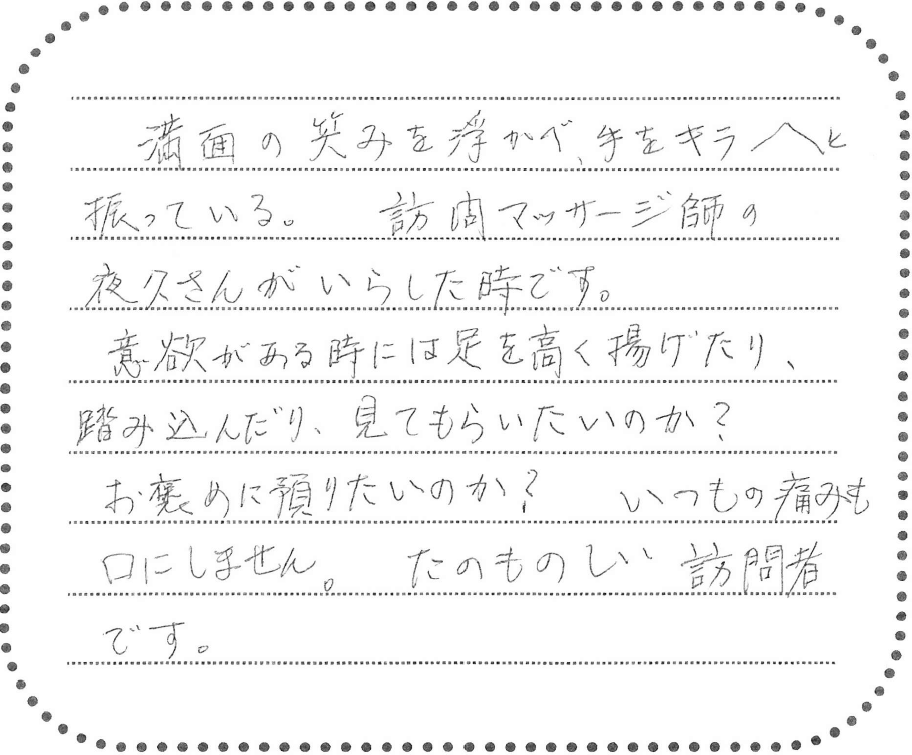 満面の笑みを浮かべ、手をキラ〱と
振っている。 訪問マッサージ師の
夜久さんがいらした時です。
意欲がある時には足を高く揚げたり、
踏み込んだり、見てもらいたいのか？
お褒めに預りたいのか？ いつもの痛みも
口にしません。 たのものしい 訪問者
です。